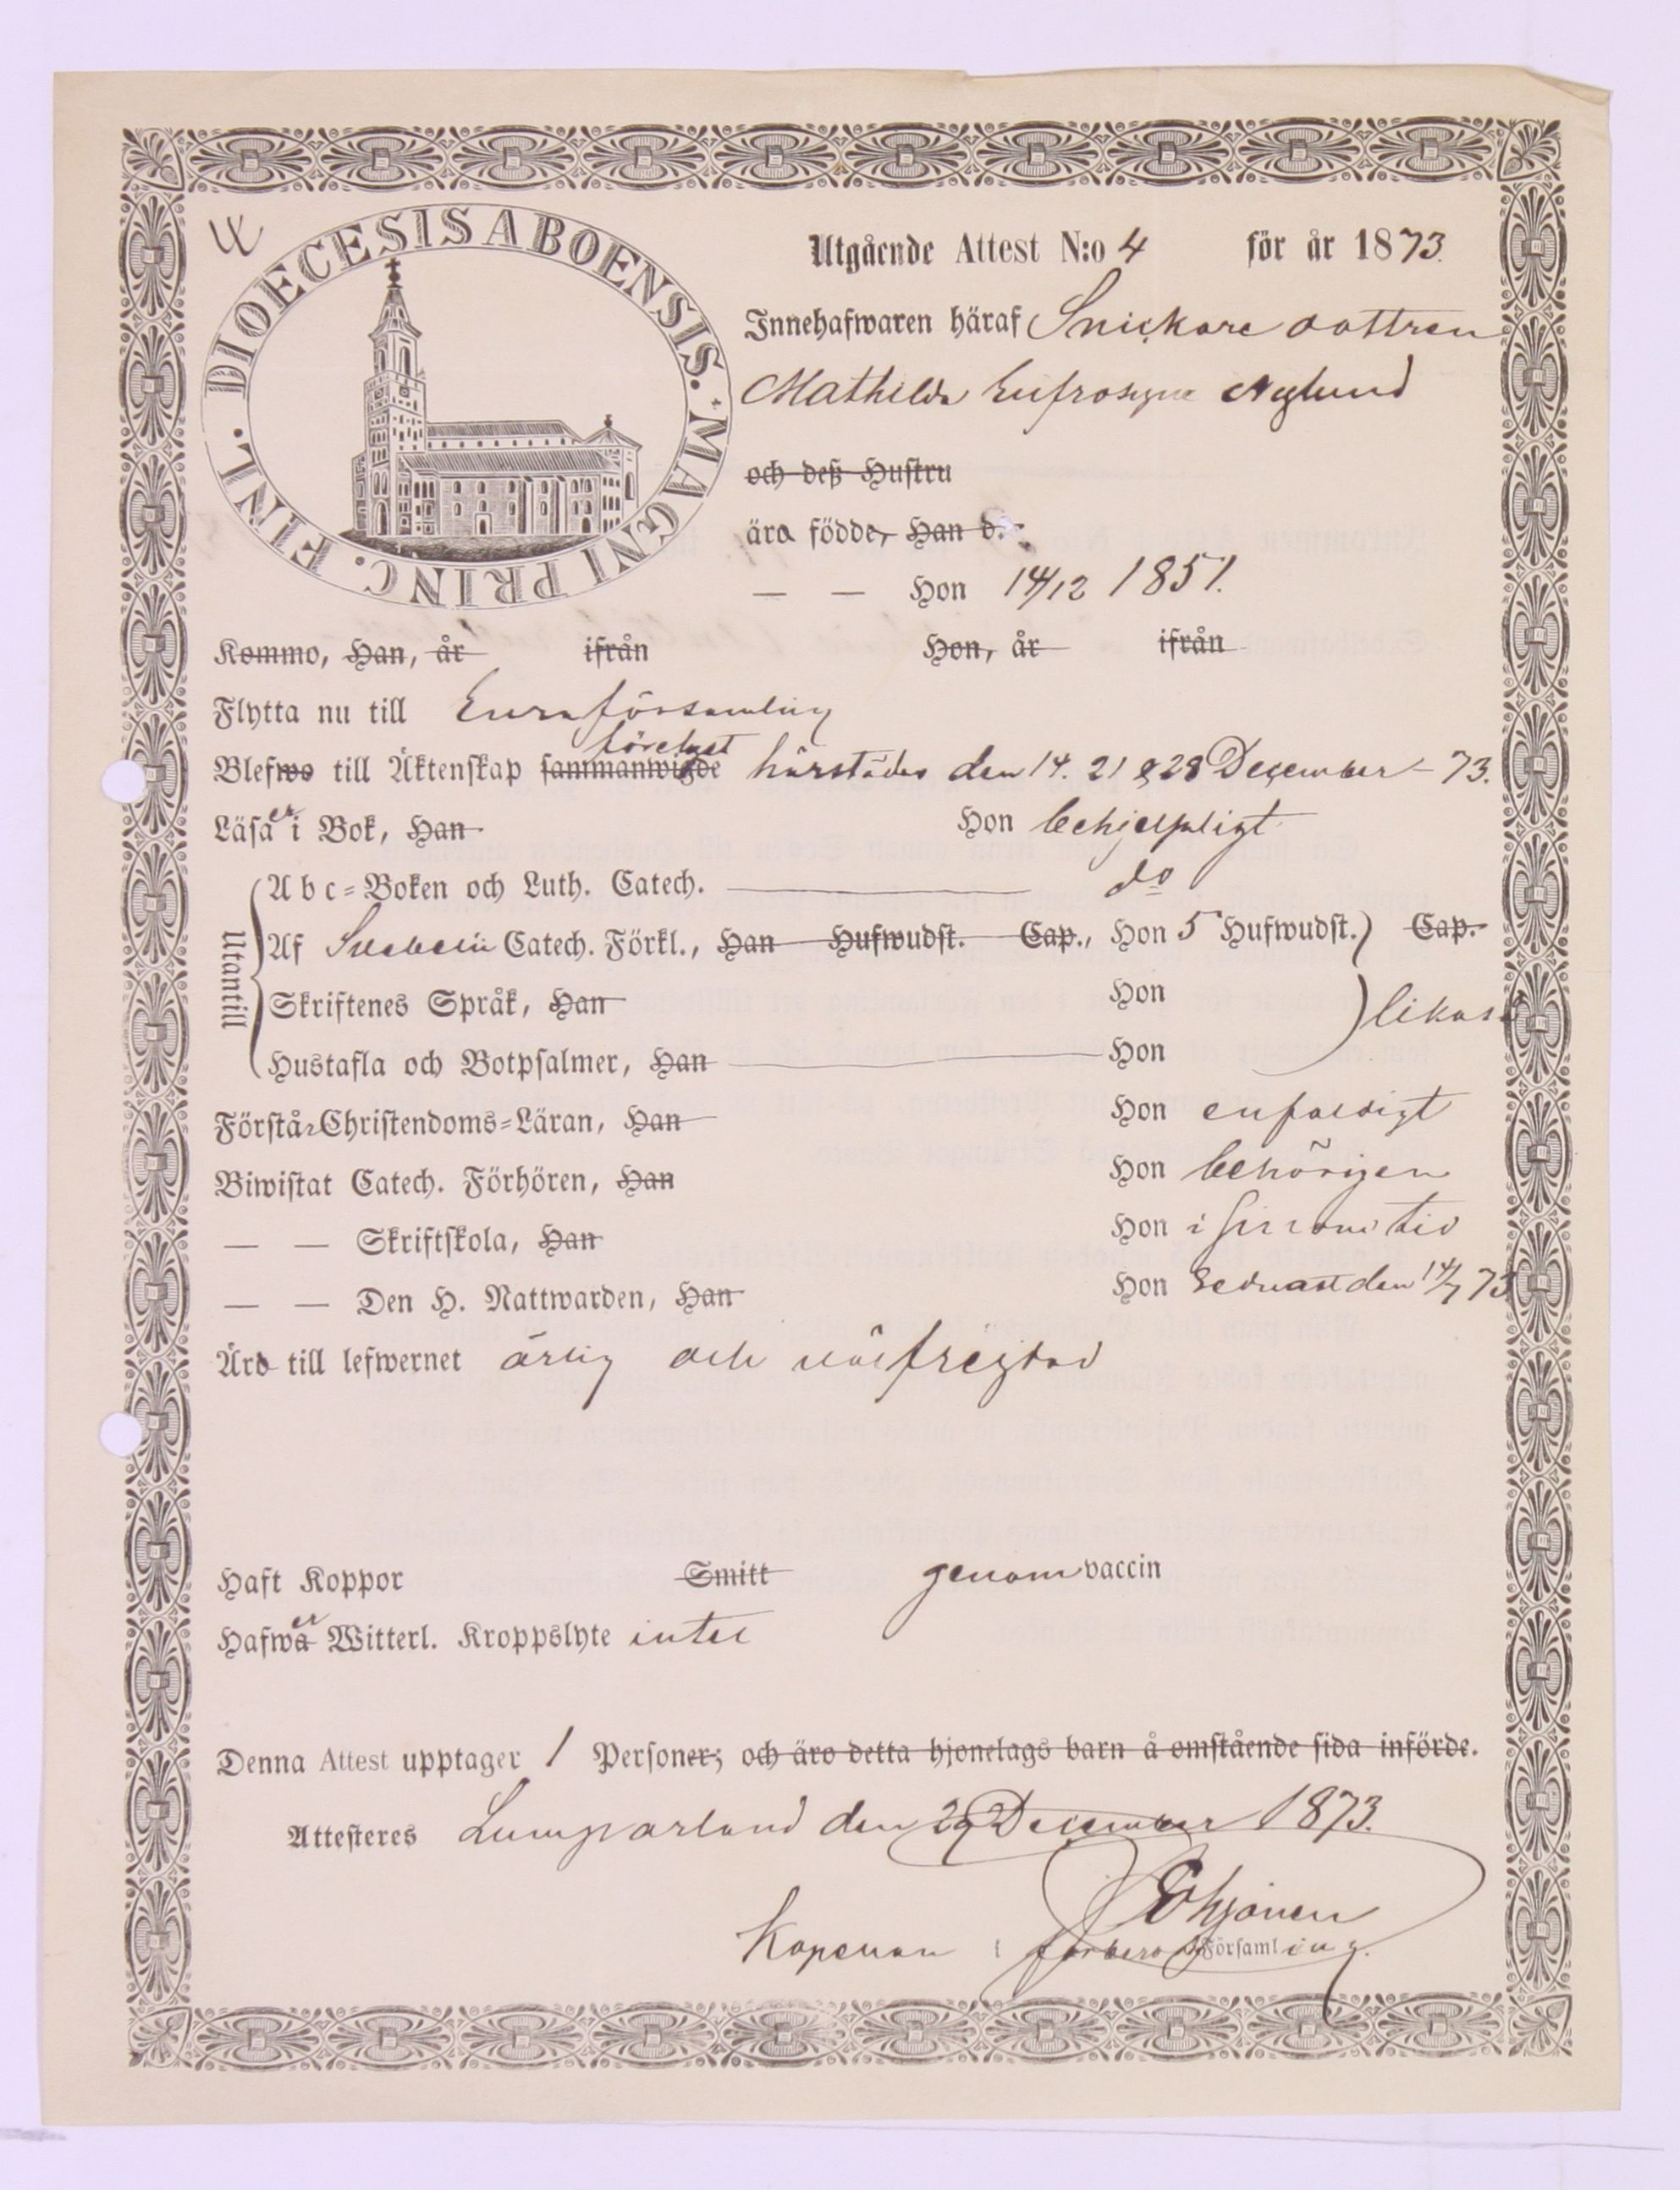 DIOECESIS ABOENSIS. MAGNI PRINC. FINL.
Utgående Attest N:o 4 för år 1873.
Innehafwaren häraf Snickare dottren
Mathilda Eufrosyne Nylund
och deß Hustru
äro födde, Han d.
— — Hon 14/12 1851.
Kommo, Han, år ifrån Hon, år ifrån
Flytta nu till Eura församling
förelyst
Blefwo till Äktenskap sammanwigde härstädes den 14. 21 & 28 December - 73.
Läsa er i Bok, Han Hon behjelpligt
Utantill
Abc=Boken och Luth. Catech. do
Af Svebelii Catech. Förkl., Han Hufwudst. Cap., Hon 5 Hufwudst. Cap.
Skriftenes Språk, Han Hon likaså
Hustafla och Botpsalmer, Han Hon
Förstår Christendoms=Läran, Han Hon enfaldigt
Biwistat Catech. Förhören, Han Hon behörigen
— — Skriftskola, Han Hon i sin tid
— — Den H. Nattwarden, Han Hon sednast den 14/7 73
Äro till lefwernet ärlig och välfrejdad
Haft Koppor Smitt genom vaccin
er
Hafwa Witterl. Kroppslyte intet
Denna Attest upptager 1 Personer; och äro detta hjonelags barn å omstående sida införde.
Attesteres Lumparland den 29 December 1873.
Kapellan i Församling.